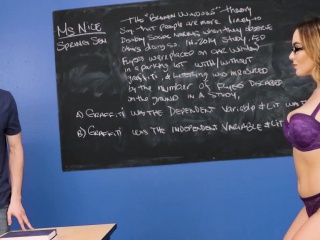 Ms. Nice
The "Broken Windows" theory
Say that people are more likely to
Disobey Social Norms when they observe
others doing so. In 2004 Study, 
Flyers were placed on car window
in a parking lot with/without
graffiti & littering was measured
by the number of Flyers Discarded
on the ground in a Study.
A) Graffiti was the Dependent Variable & Lit was
B) Graffiti was the Independent Variable & Lit